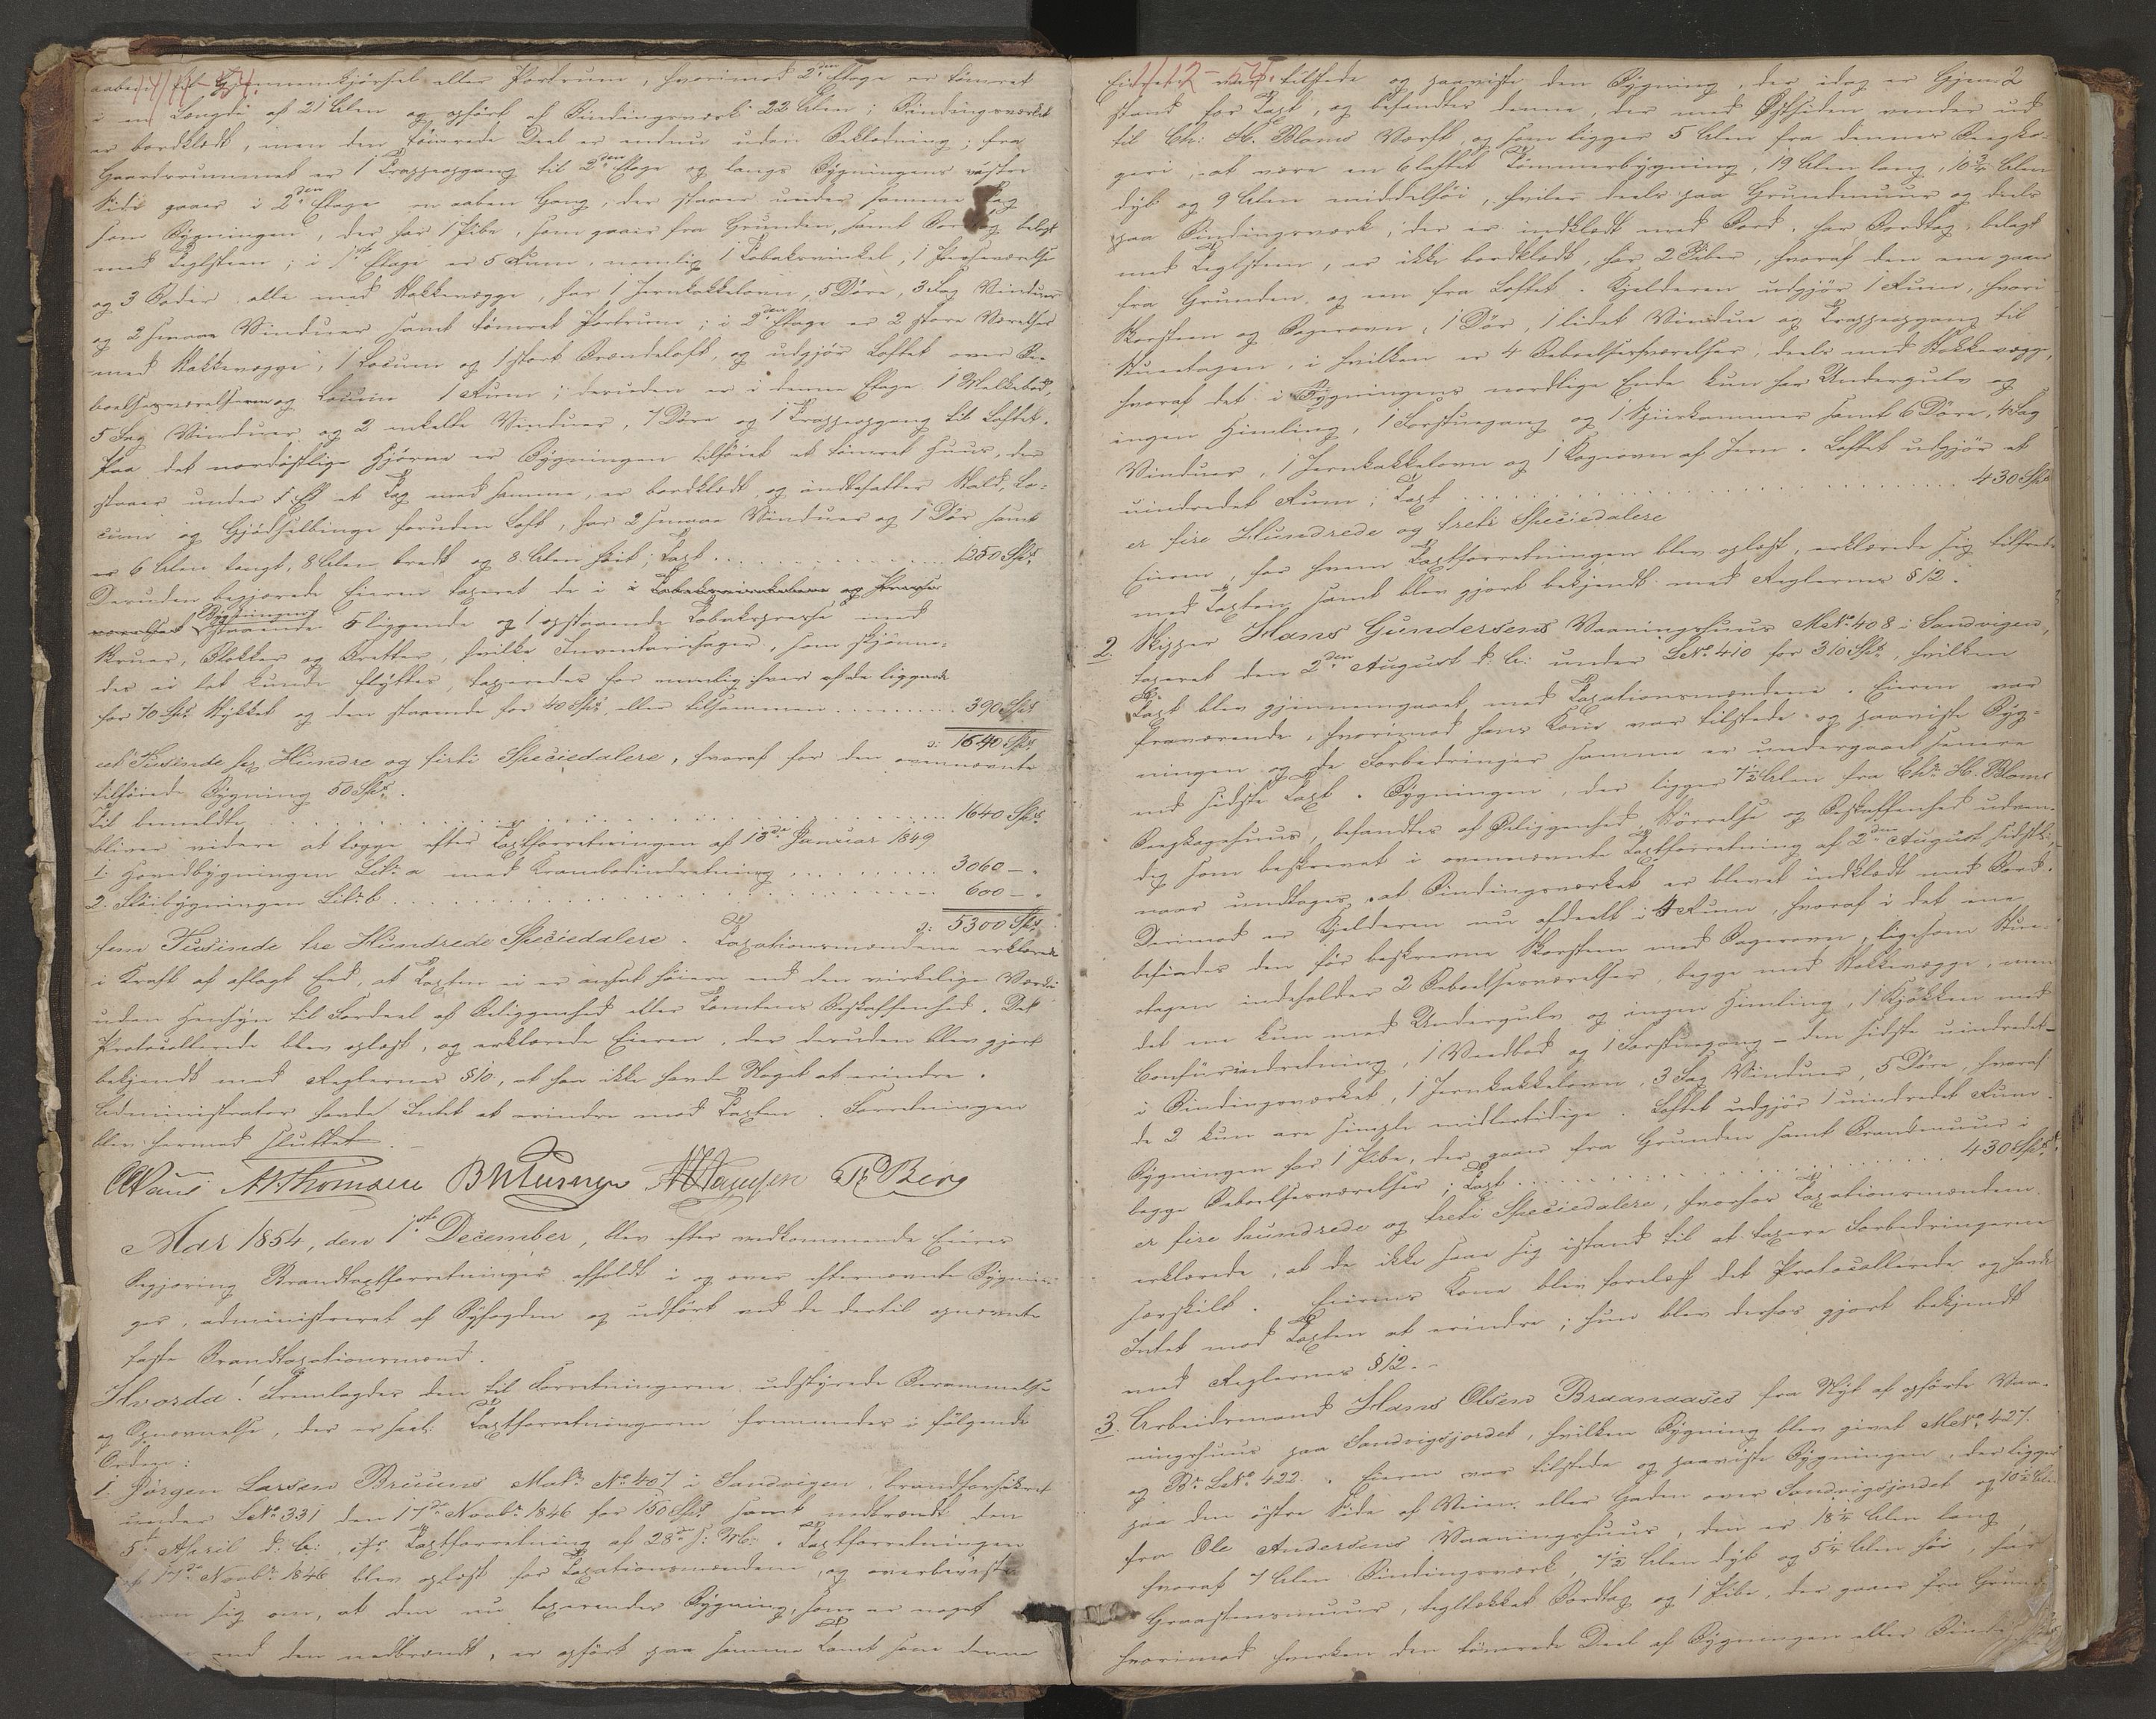 aaben til Gjennemkjørsel eller Portrum, hvorimod 2den Etage er tømret
i en Længde af 21 Alen og opført af Bindingsværk 22 Alen; Bindingsværket
er bordklædt, men den tømrede Deel er endnu uden Beklædning; fra
Gaardsrummet er 1 Trappeopgang til 2den Etage og langs Bygningens østre
Side gaaer i 2den Etage en aaben Gang, der staaer under samme Tag
som Bygningen, der har 1 Pibe, som gaaer fra Grunden, samt Bordtag belagt
med Teglsteen; i 1ste Etage er 5 Rum, nemlig 1 Tobaksvinkel, 1 Presseværelse
og 3 Boder alle med Stokkevægge, har 1 Jernkakkelovn, 5 Døre, 3 Fag Vinduer
og 2 smaae Vinduer samt tømret Portrum; i 2den Etage er 2 store Værelser
med Stokkevægge, 1 Locum og 1 stort Brændeloft, og udgjør Loftet over Be-
boelsesværelserne og Locum 1 Rum; desuden er i denne Etage 1 Melkebod,
5 Fag Vinduer og 2 enkelte Vinduer, 7 Døre og 1 Trappeopgang til Loftet.
Paa det nordøstlige Hjørne er Bygningen tilføiet et tømret Huus, der
staaer under Eet Tag med samme, er bordklædt og indbefatter Stald, Lo-
cum og Gjødselbinge foruden Loft, har 2 smaae Vinduer og 1 Dør samt
er 6 Alen langt, 8 Alen bredt og 8 Alen høit; Taxt . . . 1250 Spd.
Desuden begjærede Eieren taxeret de i Tobaksvinkelen og Presse-
værelset Bygningen staaende 5 liggende og 1 opstaaende Tobakspresse med
Skruer, Blokker og Bretter, hvilke Inventariesager, som skjønne-
des ei let kunde flyttes, taxeredes for nemlig hver af de liggende
for 70 Spd. Stykket og den staaende for 40 Spd. eller tilsammen . . . 390 Spd.
ɔ: 1640 Spd.
eet Tusinde sex Hundre og firti Speciedalere, hvoraf for den ovennævnte
tilføiede Bygning 50 Spd.
Til bemeldte . . . 1640 Spd.
bliver videre at lægge efter Taxtforretningen af 13de Januar 1849
1. Hovedbygningen Litr. a med Krambodindretning . . . 3060 - "
2. Søibygningen Litr. b . . . 600 - "
ɔ: 5300 Spd.
fem Tusinde tre Hundrede Speciedalere. Taxationsmændene erklærede
i Kraft af aflagt Eed, at Taxten ei er ansat høiere end den virkelige Værdi
uden Hensyn til Fordeel af Beliggenhed eller Tomtens Beskaffenhed. Det
Protocollerede blev oplæst, og erklærede Eieren, der desuden blev gjort
bekjendt med Reglernes § 10, at han ikke havde Noget at erindre.
Administrator havde Intet at erindre mod Taxten. Forretningen
blev hermed sluttet.
Aar 1854, den 1ste December, blev efter vedkommende Eieres
Begjæring Brandtaxtforretninger afholdt i og over efternævnte Bygnin-
ger, administreret af Byfogden og udført ved de dertil opnævnte
faste Brandtaxationsmænd.
Hvorda! Fremlagdes den til Forretningerne udstyrede Berammelse
og Opnævnelse, der er saal: Taxtforretningerne fremmedes i følgende
Orden:
1. Jørgen Larsen Bruuns Matr. No. 407 i Sandvigen, brandforsikret
under L No. 331 den 17de Novbr. 1846 for 150 Spd. samt nedbrændt den
5te April d. A:, cfr. Taxtforretning af 28de s: M:. Taxtforretningen
af 17de Novbr. 1846 blev oplæst for Taxationsmændene, og overbeviste
sig om, at den nu taxerendes Bygning, som er noget
end den nedbrændt, er opført paa samme Tomt som denne
1/12 - 54.
Eieren var tilstede og paaviste den Bygning, der idag er Gjen- 2
stand for Taxt, og befandtes denne, der med Østsiden vender ud
til Chr: H. Bloms Værft, og som ligger 5 Alen fra dennes Begko-
geri, at være en 6 laftet Tømmerbygning, 19 Alen lang, 10 3/4 Alen
dyb og 9 Alen middelhøi, hviler deels paa Grundmuur og deels
paa Bindingsværk, der er indklædt med Bord, har Bordtag, belagt
med Teglsteen, er ikke bordklædt, har 2 Piber, hvoraf den ene gaaer
fra Grunden og een fra Loftet. Kjelderen udgjør 1 Rum, hvori
Skorsteen og Bagerovn, 1 Dør, 1 lidet Vindue og Trappeopgang til
Stueetagen, i hvilken er 4 Beboelsesværelser, deels med Stokkevægge,
hvoraf det i Bygningens nordlige Ende kun har Undergulv og
ingen Himling, 1 Forstuegang og 1 Spiiskammer samt 6 Døre, 4 Fag
Vinduer, 1 Jernkakkelovn og 1 Kogeovn af Jern. Loftet udgjør et
uindredet Rum; Taxt . . . 430 Spd.
er fire Hundrede og treti Speciedalere
Eieren, for hvem Taxtforretningen blev oplæst, erklærede sig tilfreds
med Taxten, samt blev gjort bekjendt med Reglernes § 12.
2. Skipper Hans Gundersens Vaaningshuus M No. 408 i Sandvigen,
taxeret den 2den August d. A: under L No. 410 for 310 Spd., hvilken
Taxt blev gjennemgaaet med Taxationsmændene. Eieren var
fraværende, hvorimod hans Kone var tilstede og paaviste Byg-
ningen og de Forbedringer samme er undergaaet senere
end sidste Taxt. Bygningen, der ligger 7 1/2 Alen fra Chr. H. Bloms
Begkogehuus, befandtes af Beliggenhed, Størrelse og Beskaffenhed udven-
dig som beskrevet i ovennævnte Taxtforretning af 2den August sidstl:,
naar undtages, at Bindingsværket er blevet indklædt med Bord.
Derimod er Kjelderen nu afdeelt i 4 Rum, hvoraf i det ene
befindes den før beskrevne Skorsteen med Bagerovn, ligesom Stue-
etagen indeholder 2 Beboelsesværelser, begge med Stokkevægge, men
det ene kun med Undergulv og ingen Himling, 1 Kjøkken med
Comfurindretning, 1 Vedbod og 1 Forstuegang - den sidste uindredet -
i Bindingsværket, 1 Jernkakkelovn, 3 Fag Vinduer, 5 Døre, hvoraf
de 2 kun ere simple midlertidige. Loftet udgjør 1 uindredet Rum.
Bygningen har 1 Pibe, der gaaer fra Grunden samt Brandmuur i
begge Beboelsesværelser; Taxt . . . 430 Spd.
er fire hundrede og treti Speciedalere, hvorfor Taxationsmændene
erklærede, at de ikke saae sig istand til at taxere Forbedringerne
særskilt. Eierens Kone blev forelæst det Protocollerede og havde
Intet mod Taxten at erindre; hun blev derhos gjort bekjendt
med Reglernes § 12. -
3. Arbeidsmand Hans Olsen Braanaases fra Nyt af opførte Vaa-
ningshuus paa Sandvigsjordet, hvilken Bygning blev givet M No. 427.
og Br. L No. 422. Eieren var tilstede og paaviste Bygningen, der ligger
paa den østre Side af Veien eller Gaden over Sandvigsjordet og 10 1/2 Alen
fra Ole Andersens Vaaningshuus, den er 18 1/4 Alen lang,
hvoraf 7 Alen Bindingsværk, 7 1/2 Alen dyb og 5 1/4 Alen høi, har
Graasteensmuur, tegltækket Bordtag og 1 Pibe, der gaaer fra Grund
hvorimod hverken den tømrede Deel af Bygningen eller